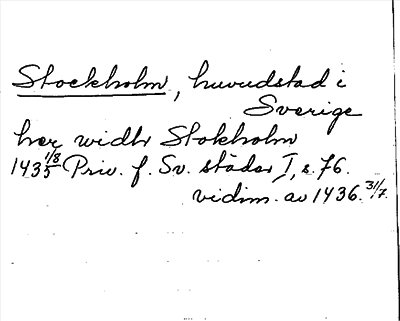 Stockholm, huvudstad i
Sverige
her widhr Stokholm
1435 1/8 Priv. f. Sv. städer I, s. 76.
vidim. av 1436. 31/7